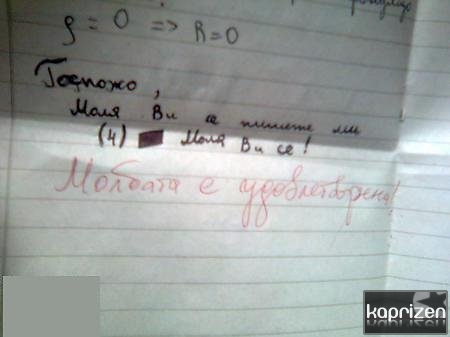 ρ = 0 => R=0
Госпожо,
Моля Ви се пишете ми
(4) Моля Ви се!
Молбата е удовлетворена!
kaprizen